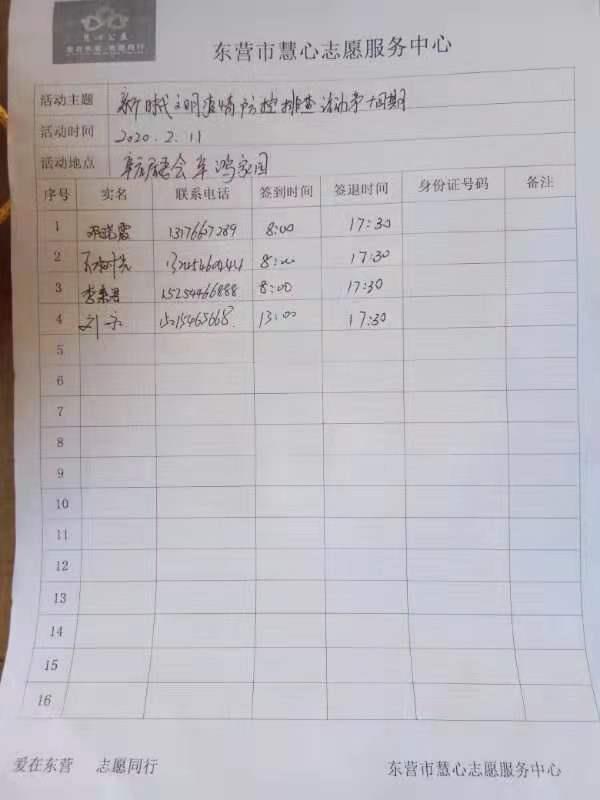 慧心公益
爱在东营 志愿同行
东营市慧心志愿服务中心
活动主题 新时代文明疫情防控排查活动第十四期
活动时间 2020.2.11
活动地点 家园
序号 实名 联系电话 签到时间 签退时间 身份证号码 备注
1 霞 13176667289 8:00 17:30
2 8:00 17:30
3 李 15254466888 8:00 17:30
4 刘 13:00 17:30
5
6
7
8
9
10
11
12
13
14
15
16
爱在东营 志愿同行 东营市慧心志愿服务中心